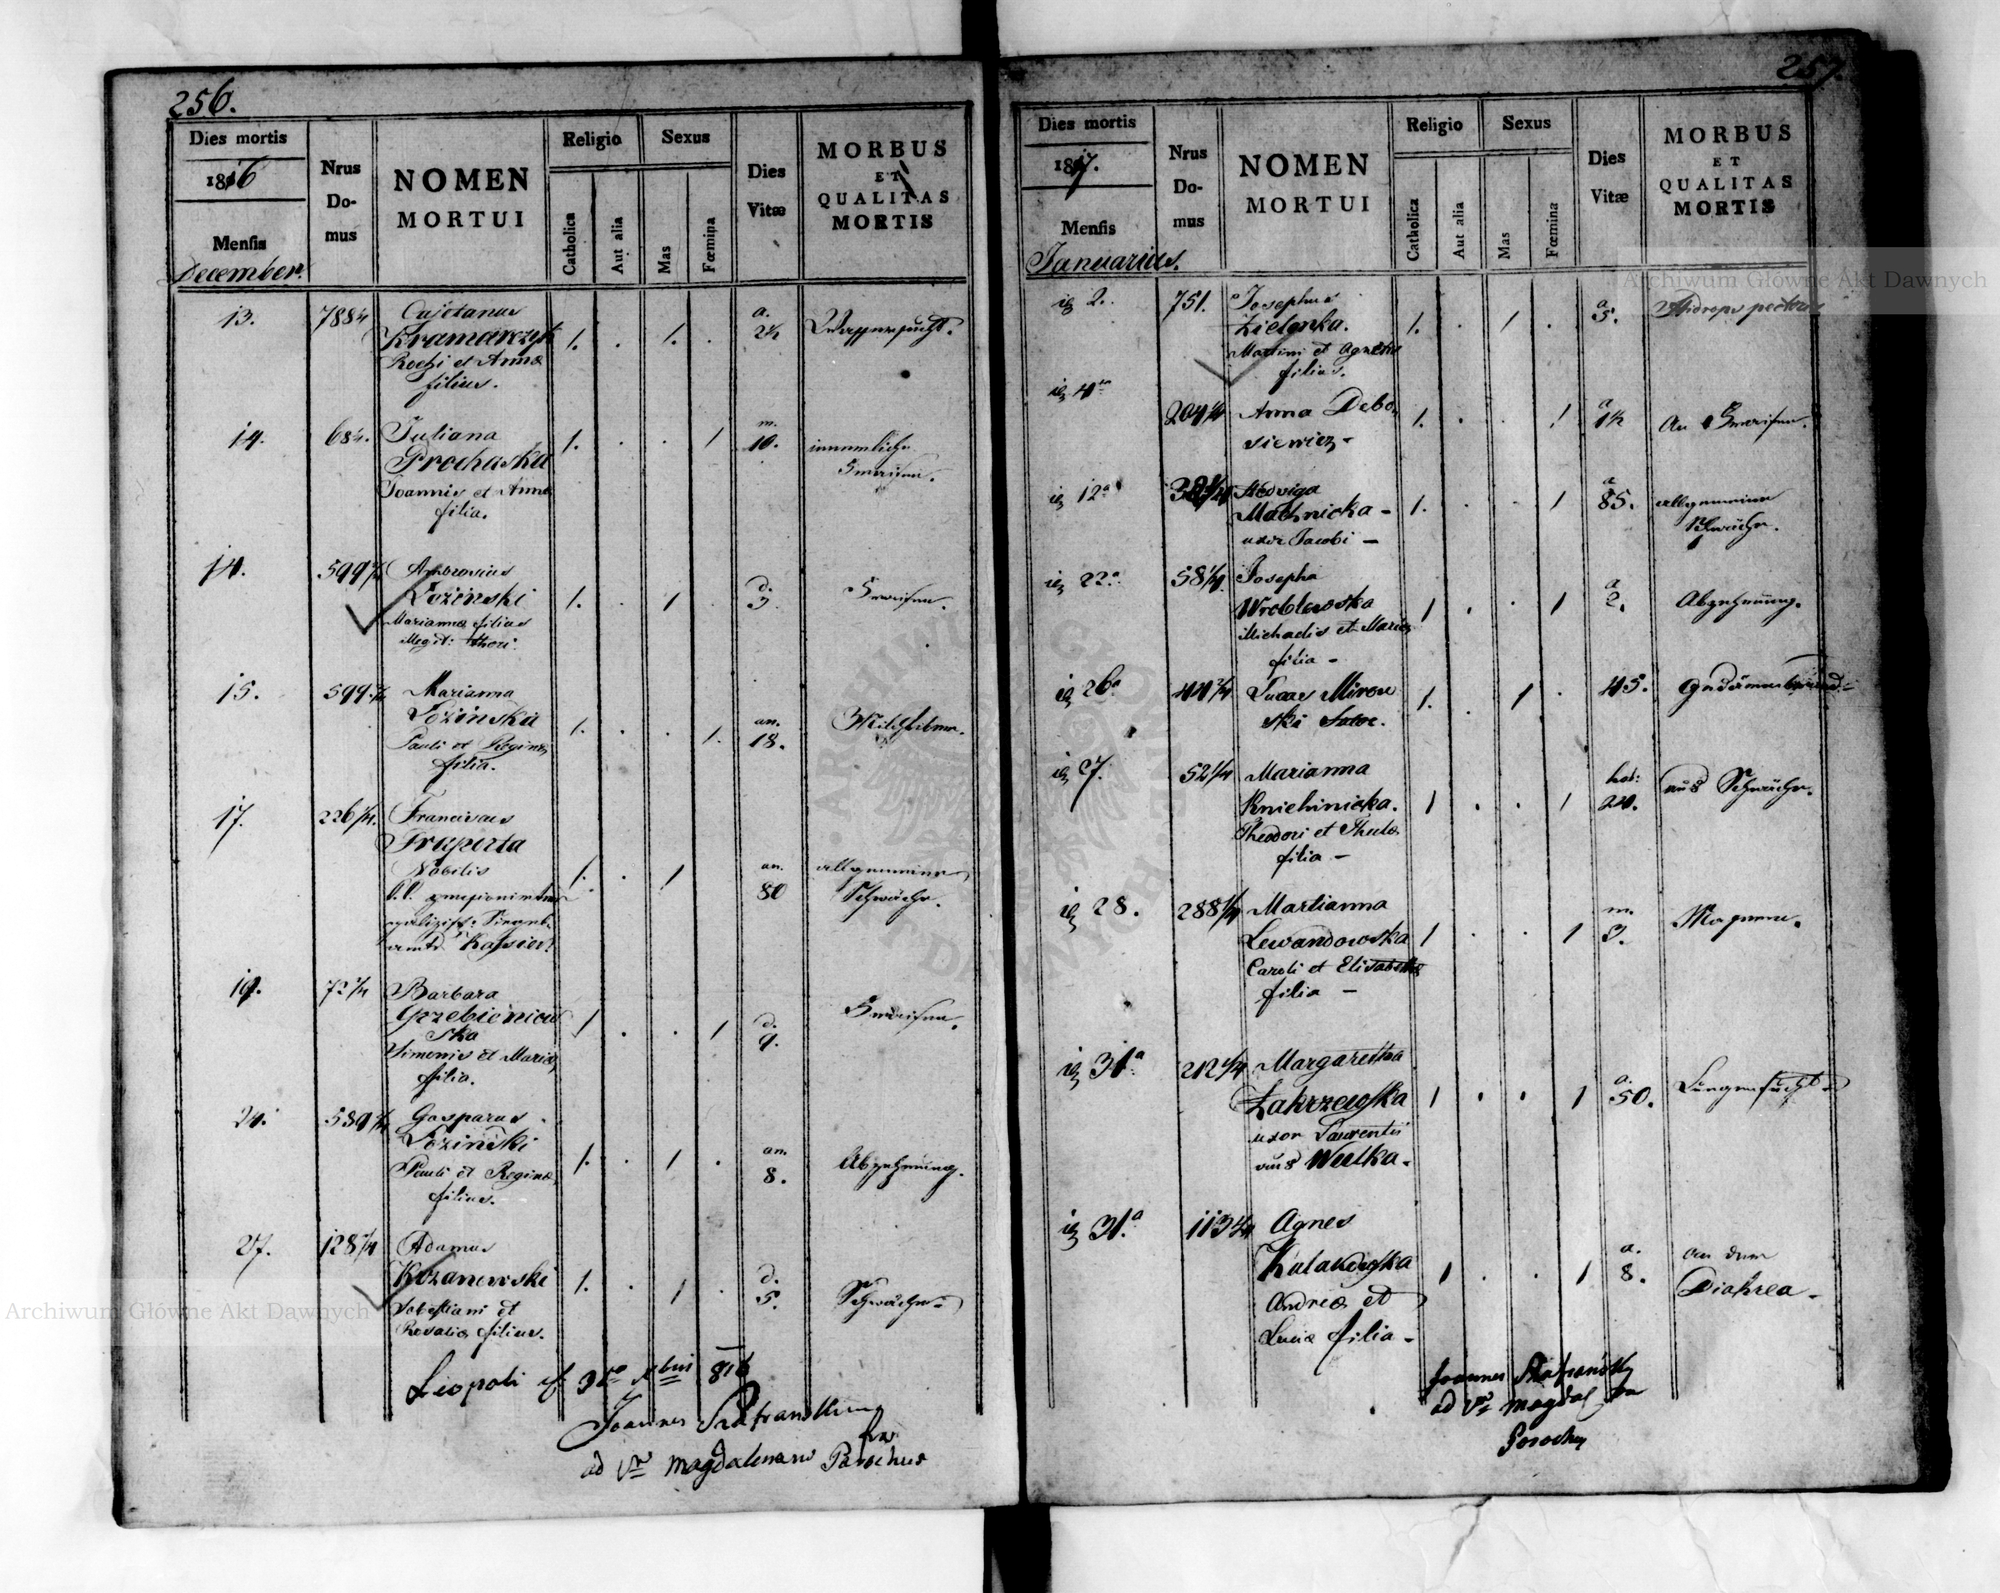 256.
Dies mortis
1816
Mensis
December.
Nrus
Do-
mus
NOMEN
MORTUI
Religio
Catholica
Aut alia
Sexus
Mas
Fœmina
Dies
Vitæ
MORBUS
ET
QUALITAS
MORTIS
13.
788/4
Cajetanus
Kramarczyk
Rochi et Annæ
filius.
1. . 1. .
a.
2½
Wassersucht.
14.
68/4.
Juliana
Prochaska
Joannis et Annæ
filia.
1. . . 1
m.
10.
innerliche
Fraisen.
14.
599 2/4
Ambrosius
Łoziński
Mariannæ filius
illegit: thori.
1. . 1 .
d.
3.
Fraisen.
15.
599 2/4
Marianna
Łozinska
Pauli et Reginæ
filia.
1. . . 1.
an.
18.
17.
226 1/4.
Franciscus
Nobilis
1. . 1
an.
80
allgemeine
Schwäche.
19.
72 1/4
Barbara
Grzebieniow
ska
Simonis et Mariæ
filia.
1 . . 1
d.
9.
Fraisen.
24.
589 2/4
Gasparus
Łoziński
Pauli et Reginæ
filius.
1. . 1 .
an.
8.
Abzehrung.
27.
128 1/4
Adamus
Kozanowski
Sebestiani et
Rosaliæ filius.
1. . 1 .
d.
5.
Schwäche
Leopoli 816
Joannes
ad Magdalenam Parochus
257.
Dies mortis
1817.
Mensis
Januarius.
Nrus
Do-
mus
NOMEN
MORTUI
Religio
Catholica
Aut alia
Sexus
Mas
Fœmina
Dies
Vitæ
MORBUS
ET
QUALITAS
MORTIS
2.
751.
Josephus
Zielonka.
Martini et Agnetis
filius.
1. . 1 .
a
5.
Hidrops pectoris
4ta
204 1/4
Anna Debo
siewicz -
1. . . 1
a
1½
An Fraisen.
12a
Hedviga
Machnicka -
uxor Jacobi -
1. . . 1
a
85.
allgemeine
Schwäche.
22a
58 1/4
Josepha
Wroblewska
Michaelis et Mariæ
filia -
1 . . 1
a
2.
Abzehrung.
26a
44 2/4
Lucas Mirow
ski
1. . 1 .
45.
27.
52 1/4
Marianna
Kniehinicka.
Theodori et Theclæ
filia -
1 . . 1
hor:
24.
aus Schwäche.
28.
288 1/4
Marianna
Lewandowska
Caroli et Elisabethæ
filia -
1 . . 1
m.
3.
Magen
31a
212 1/4
Margaretha
Zakrzewska
uxor Laurentii
aus Wulka.
1 . . 1
a.
50.
Lungensucht
31a
113 2/4
Agnes
Andreæ et
Luciæ filia -
1 . . 1
a.
8.
an dem
Diahrea -
Joannes
ad Magdal
Parochus
Archiwum Główne Akt Dawnych
Archiwum Główne Akt Dawnych